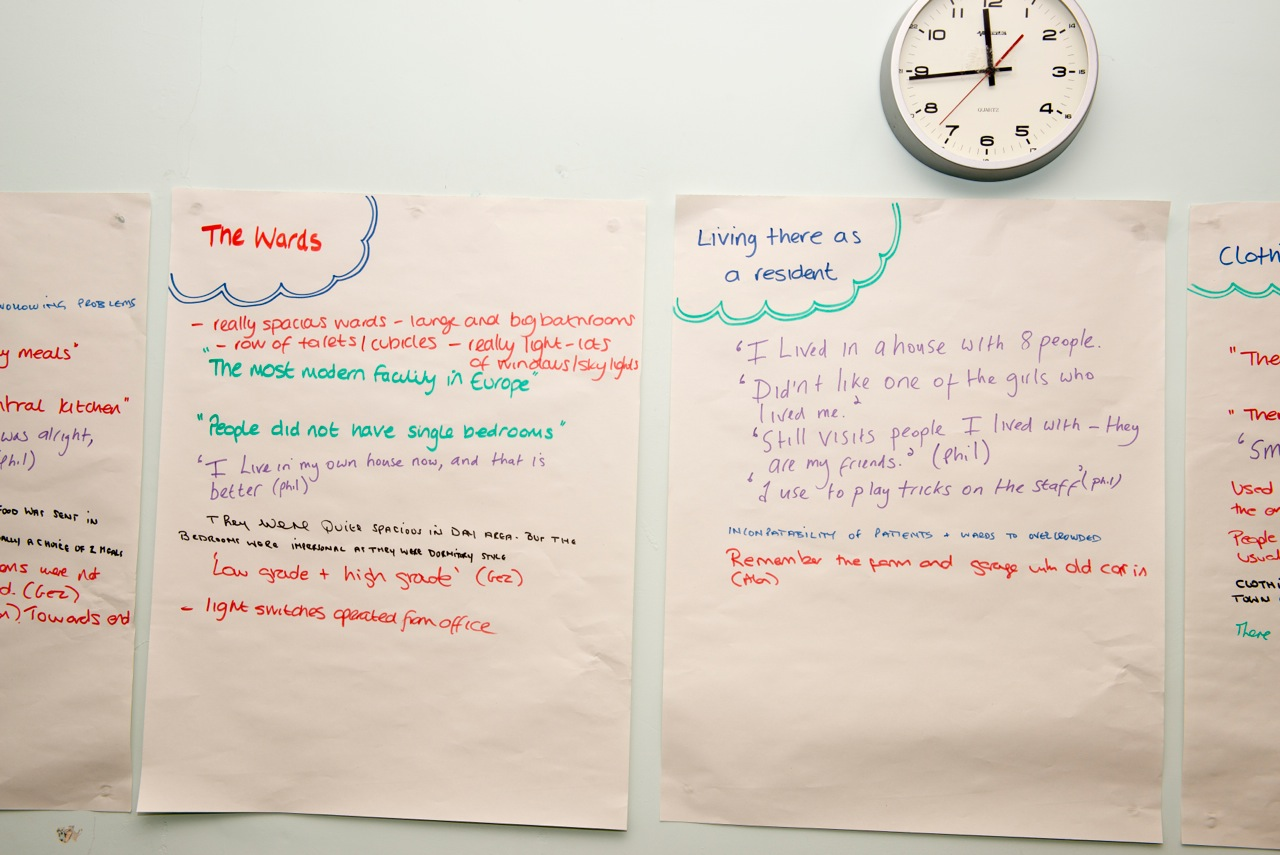 12
11
1
10
2
9
3
8
4
7
5
6
QUARTZ
NOLLOWING PROBLEMS
y meals"
ntral kitchen"
was alright,
(Phil)
FOOD WAS SENT IN
ALLY A CHOICE OF 2 MEALS
ons were not
d. (Gez)
Towards end
The Wards
- really spacias wards - lounge and big bathrooms
- row of toilets/cubicles - really light - lots
of windows/sky lights
"The most modern facility in Europe"
"People did not have single bedrooms"
'I Live in my own house now, and that is
better (phil)'
THEY WERE QUITE SPACIOUS IN DAY AREA. BUT THE
BEDROOMS WERE IMPERSONAL AS THEY WERE DORMITORY STYLE
'Low grade + high grade' (Gez)
- light switches operated from office
Living there as
a resident
'I Lived in a house with 8 people.
'Didn't like one of the girls who
lived me.'
'Still visits people I lived with - they
are my friends.' (Phil)
'I use to play tricks on the staff' (phil)
INCONPATABILITY OF PATIENTS + WARDS TO OVERCROWDED
Remember the farm and garage with old car in
(Alan)
Clothi
"The
"Ther
'Sm
Used
the on
People
usual
CLOTHI
TOWN
There